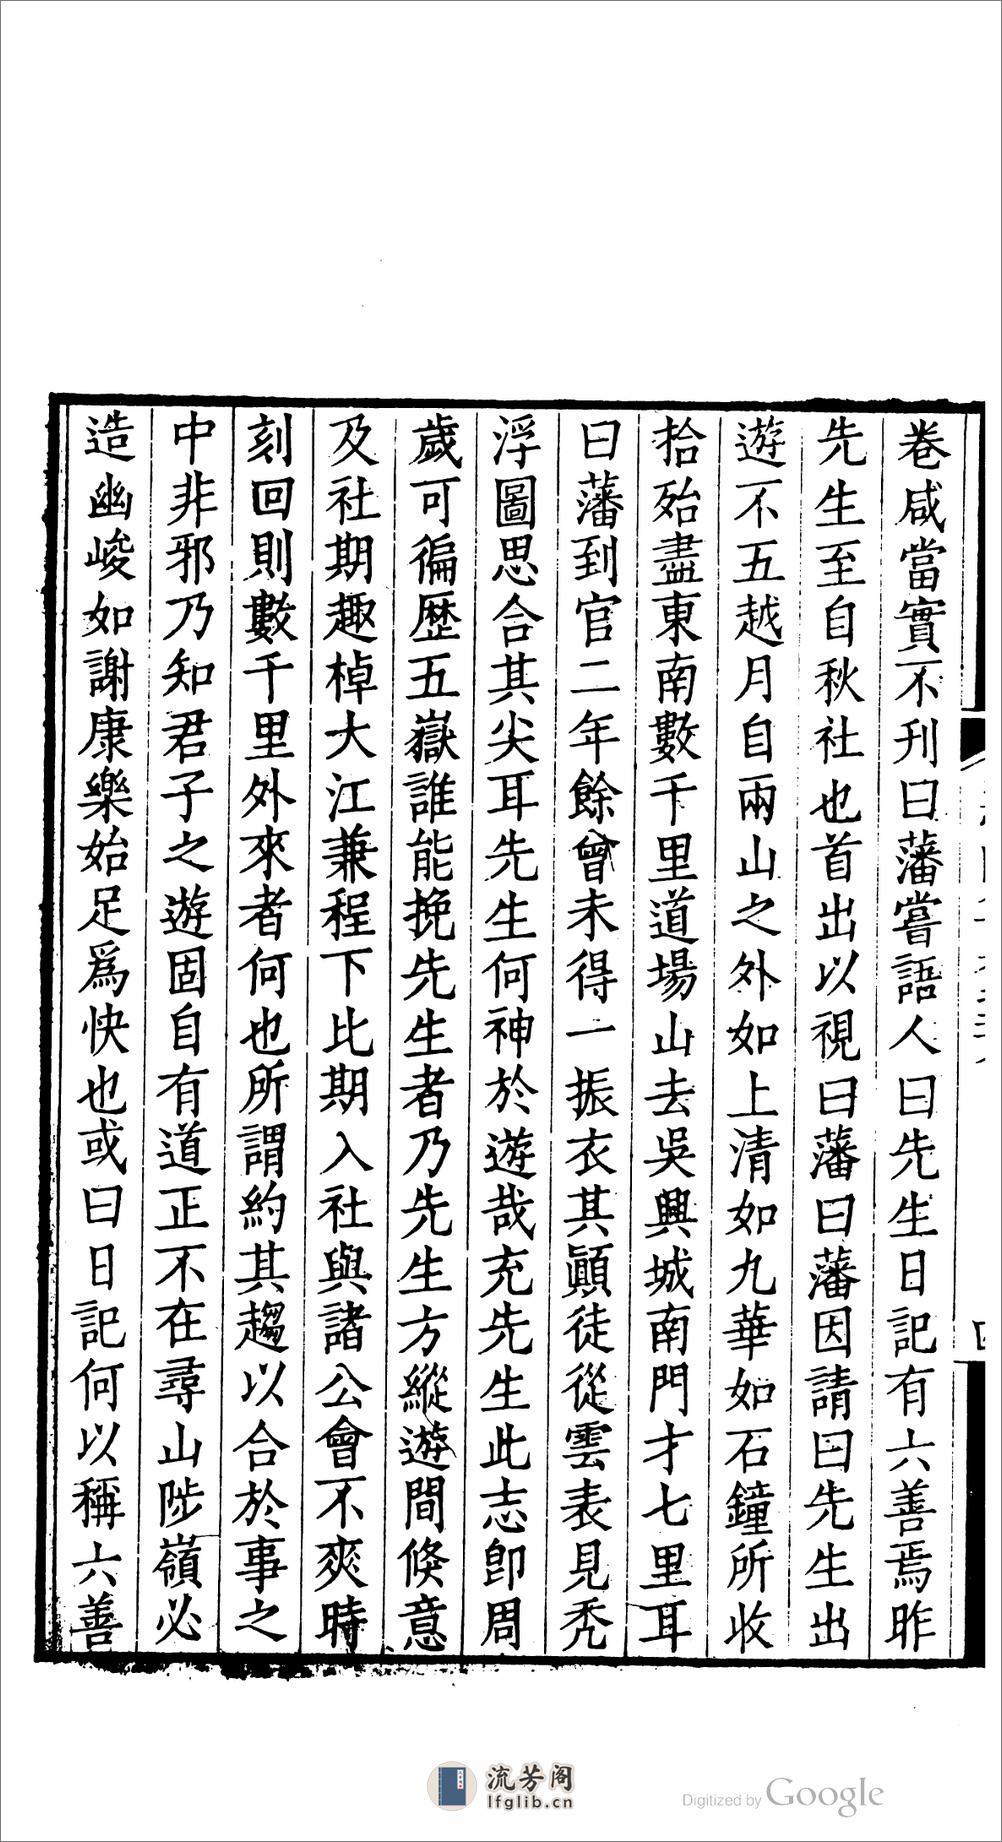 卷咸當實不刊曰藩嘗語人曰先生日記有六善焉昨
先生至自秋社也首出以視曰藩曰藩因請曰先生出
遊不五越月自兩山之外如上清如九華如石鐘所收
拾殆盡東南數千里道場山去吳興城南門才七里耳
曰藩到官二年餘曾未得一振衣其顚徒從雲表見禿
浮圖思合其尖耳先生何神於遊哉充先生此志卽周
歲可徧歷五嶽誰能挽先生者乃先生方縱遊間倏意
及社期趣棹大江兼程下比期入社與諸公會不爽時
刻回則數千里外來者何也所謂約其趨以合於事之
中非邪乃知君子之遊固自有道正不在尋山陟嶺必
造幽峻如謝康樂始足爲快也或曰日記何以稱六善
流芳阁
lfglib.cn
Digitized by Google